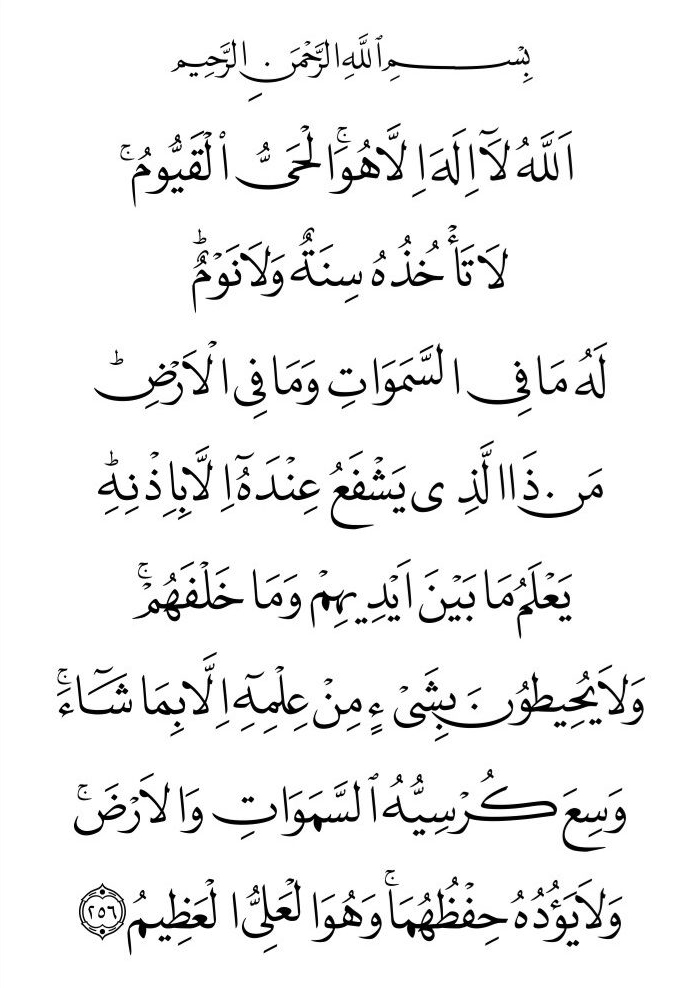 بِسْمِ ٱللَّهِ الرَّحْمَنِ الرَّحِيمِ
اَللَّهُ لَآ اِلَهَ اِلَّا هُوَ الْحَىُّ ٱلْقَيُّومُ ۚ
لَا تَأْخُذُهُ سِنَةٌ وَلَا نَوْمٌ ؕ
لَهُ مَا فِى السَّمَوَاتِ وَمَا فِى الْاَرْضِ ؕ
مَن ذَا الَّذِى يَشْفَعُ عِنْدَهُٓ اِلَّا بِاِذْنِهِ ؕ
يَعْلَمُ مَا بَيْنَ اَيْدِيهِمْ وَمَا خَلْفَهُمْ ۚ
وَلَا يُحِيطُونَ بِشَىْءٍ مِنْ عِلْمِهِٓ اِلَّا بِمَا شَآءَ ۚ
وَسِعَ كُرْسِيُّهُ ٱلسَّمَوَاتِ وَالاَرْضَ ۚ
وَلَا يَؤُدُهُ حِفْظُهُمَا ۚ وَهُوَ الْعَلِىُّ الْعَظِيمُ ٢٥٦